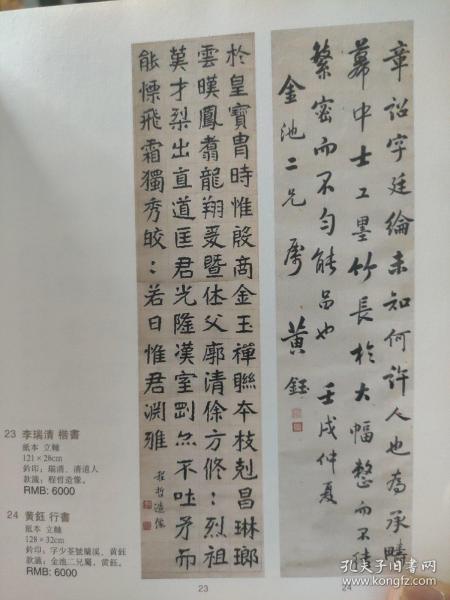 於皇寶胄時惟殷商金玉禪聯本枝剋昌琳瑯
雲暵鳳翥龍翔爰暨佐父廓清徐方修:烈祖
英才桀出直道匡君光隆漢室剛亦不吐矛而
能慄飛霜獨秀皎:若日惟君淵雅
程哲造像
章詔字廷綸未知何許人也為承疇
幕中士工墨竹長於大幅整而不
繁密而不勻能品也 壬戌仲夏
金池二兄屬 黃鈺
23 李瑞清 楷書
紙本 立軸
121×28cm
鈐印：瑞清、清道人
款識：程哲造像。
RMB: 6000
24 黃鈺 行書
紙本 立軸
128×32cm
鈐印：字少荃號蘭溪、黃鈺
款識：金池二兄屬，黃鈺。
RMB: 6000
23
24
孔夫子旧书网